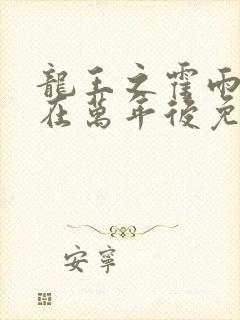 龍王之霍雨
在萬年後免
安寧